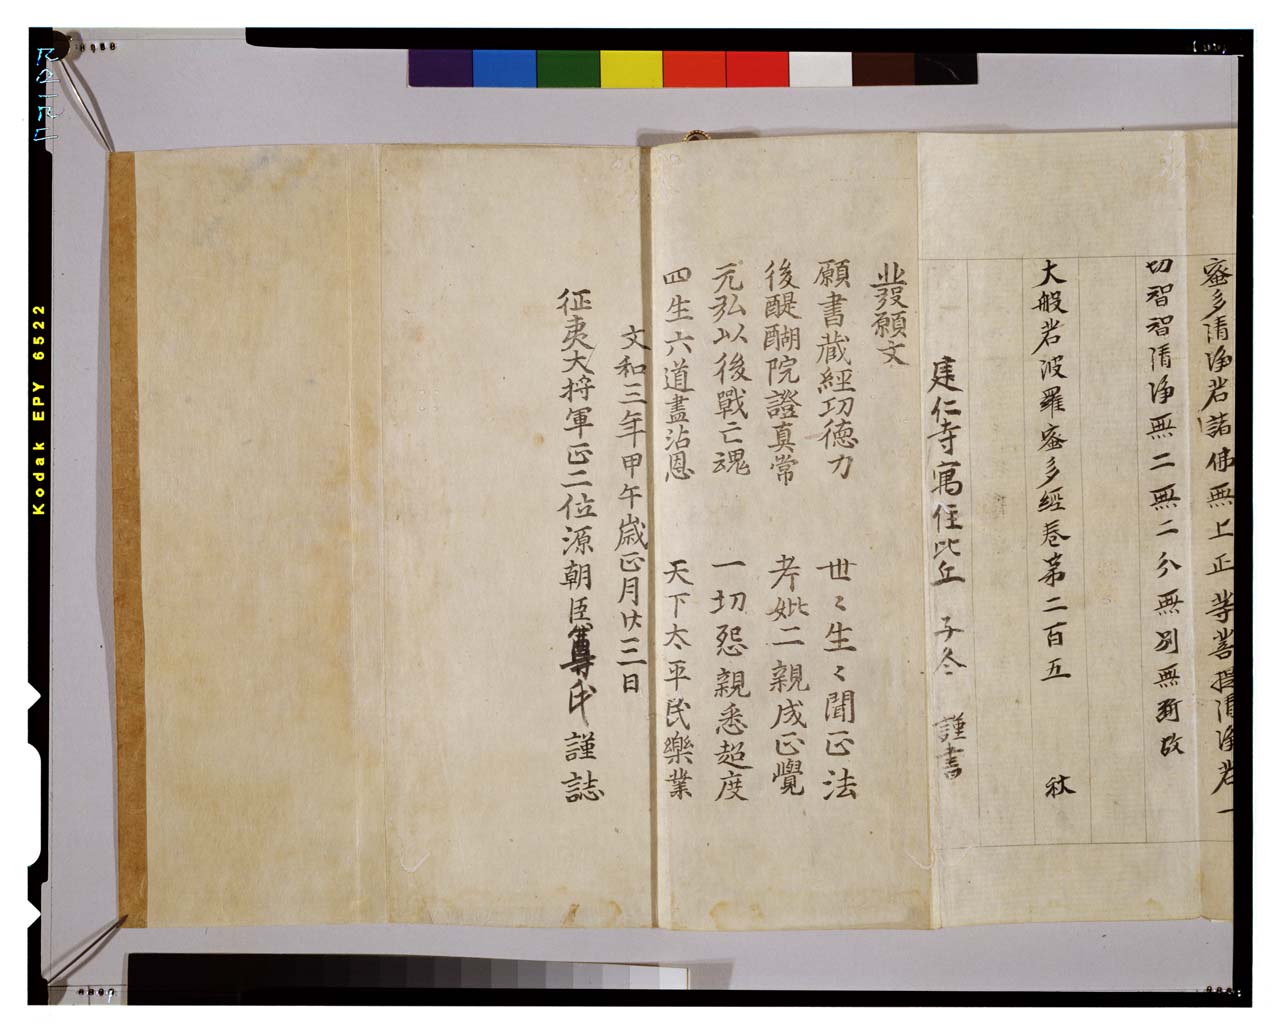 蜜多清淨若諸佛無上正等菩提清淨若一
切智智清淨無二無二分無別無斷故
大般若波羅蜜多經卷第二百五 秋
建仁寺寓住比丘 子冬 謹書
發願文
願書藏經功德力 世〻生〻聞正法
後醍醐院證真常 考妣二親成正覺
元弘以後戰亡魂 一切怨親悉超度
四生六道盡沾恩 天下太平民樂業
文和三年甲午歲正月廿三日
征夷大將軍正二位源朝臣尊氏謹誌
Kodak EPY 6522